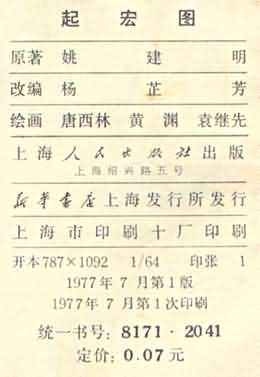 起宏图
原著 姚建明
改编 杨芷芳
绘画 唐西林 黄渊 袁继先
上海人民出版社出版
上海绍兴路五号
新华书店上海发行所发行
上海市印刷十厂印刷
开本787×1092 1/64 印张 1
1977年 7 月第1版
1977年 7 月第1次印刷
统一书号: 8171·2041
定价: 0.07元